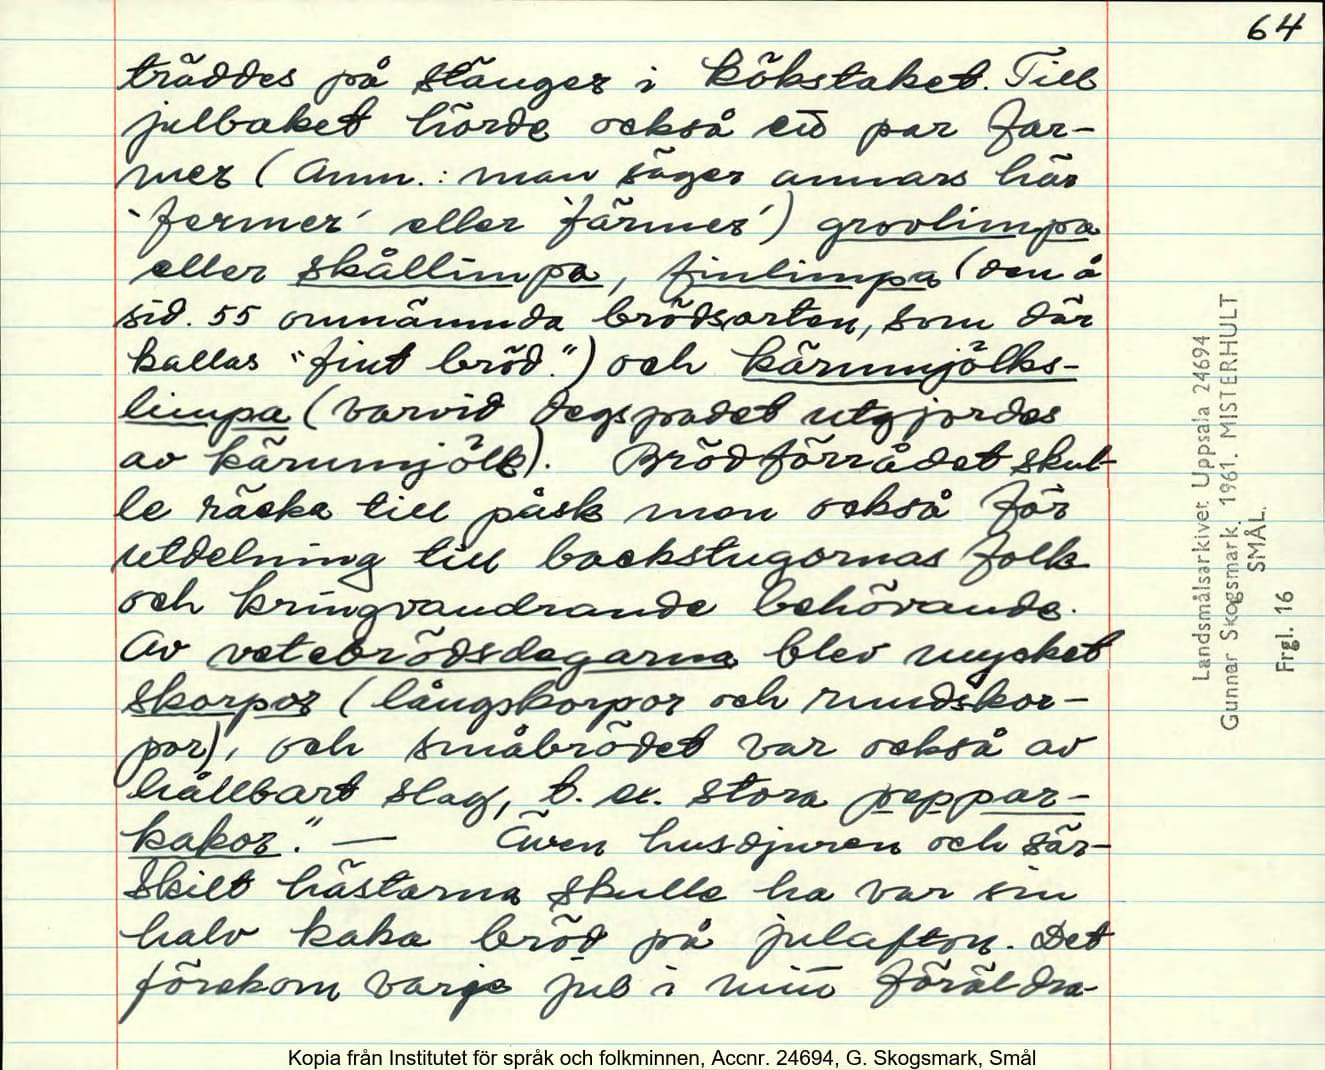 64
träddes på stänger i kökstaket. Till
julbaket hörde också ett par far-
mer (Anm.: man säger annars här
'fermer' eller 'färmer') grovlimpa
eller skållimpa, finlimpa (den å
sid. 55 omnämnda brödsorten, som där
kallas "fint bröd.") och kärnmjölks-
limpa (varvid degspadet utgjordes
av kärnmjölk). Brödförrådet skul-
le räcka till påsk men också för
utdelning till backstugornas folk
och kringvandrande behövande.
Av vetebrödsdegarna blev mycket
skorpor (långskorpor och rundskor-
por), och småbrödet var också av
hållbart slag, t. ex. stora peppar-
kakor." — Även husdjuren och sär-
skilt hästarna skulle ha var sin
halv kaka bröd på julafton. Det
förekom varje jul i mitt föräldra-
Landsmålsarkivet Uppsala 24694
Gunnar Skogsmark. 1961. MISTERHULT
SMÅL.
Frgl. 16
Kopia från Institutet för språk och folkminnen, Accnr. 24694, G. Skogsmark, Smål